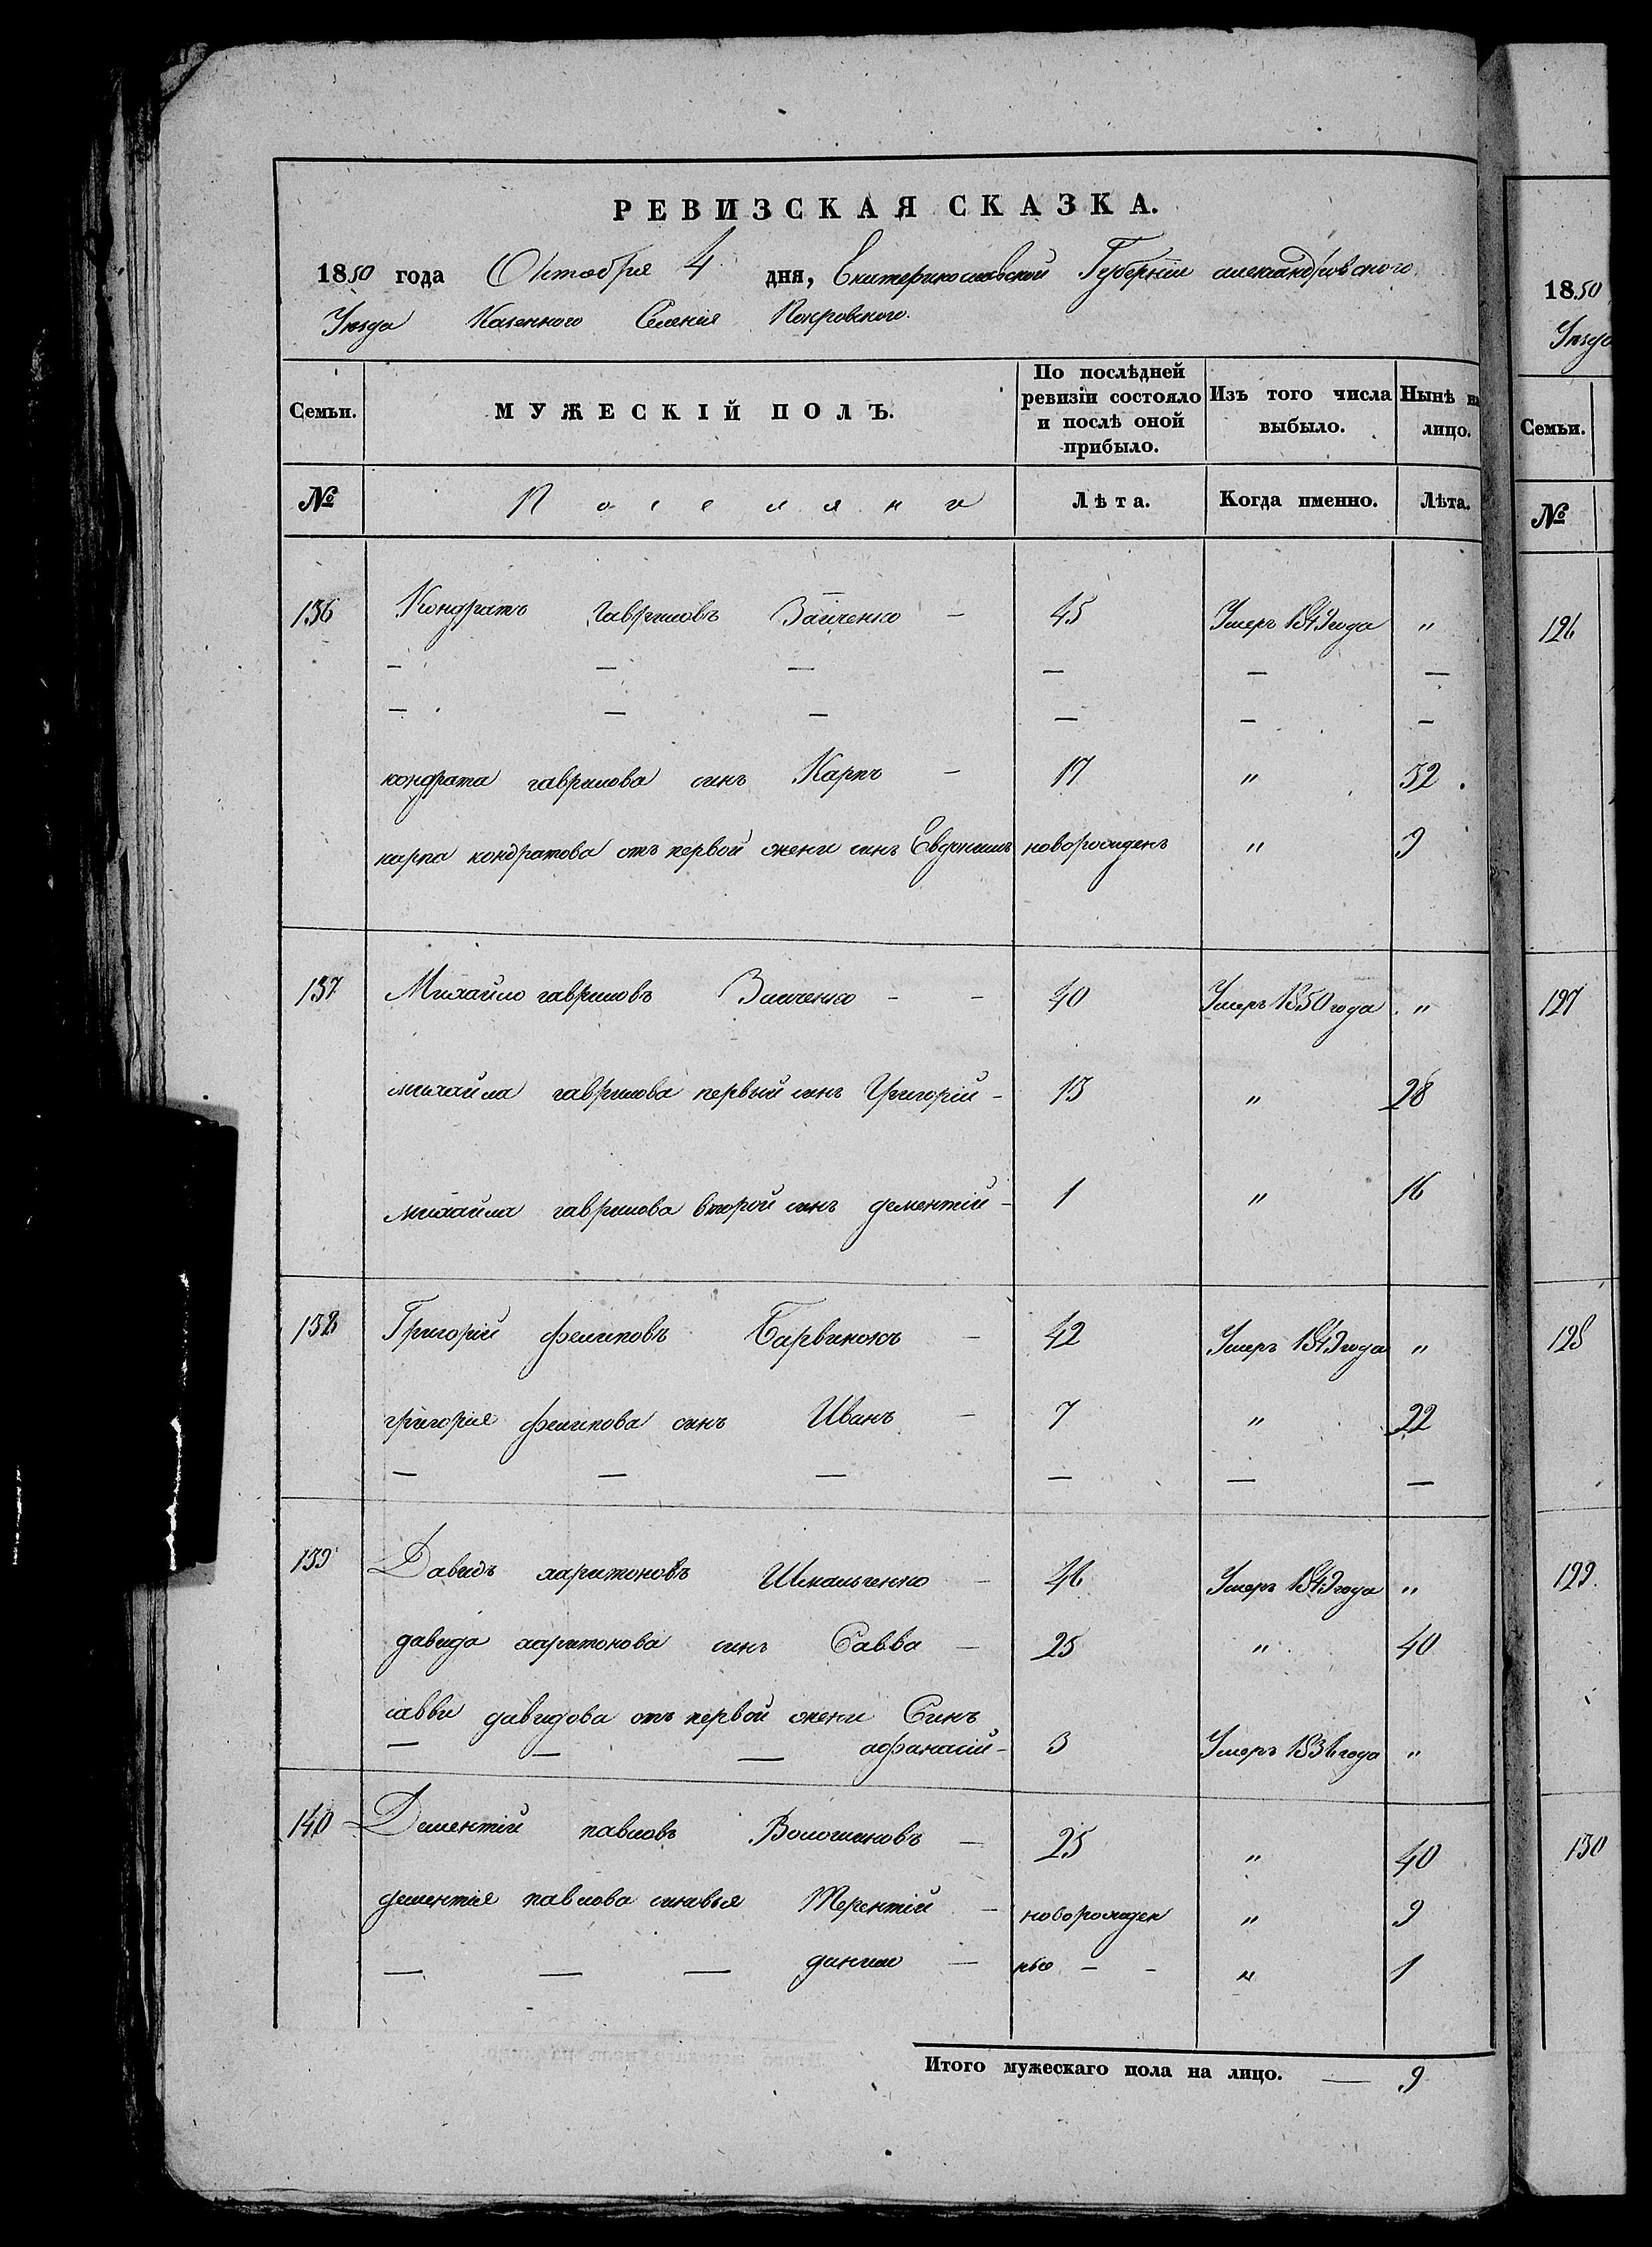 РЕВИЗСКАЯ СКАЗКА.
1850 года Октября 4 дня, Екатеринославской Губерніи александровского
Уезда Казенного Селенія Покровского.
Семьи. МУЖЕСКІЙ ПОЛЪ. По послѣдней ревизіи состояло и послѣ оной прибыло. Изъ того числа выбыло. Нынѣ на лицо.
№ Поселяни Лѣта. Когда именно. Лѣта.
136 Кондратъ гавриловъ Заиченко — 45 Умеръ 1849 года "
— — — — — —
— — — — — —
кондрата гаврилова синъ Карпъ — 17 " 32
карпа кондратова отъ первой жени синъ Евдокимъ новорожденъ " 9
137 Михайло гавриловъ Заиченко - - 40 Умеръ 1850 года "
михайла гаврилова первый синъ Григорій - 13 " 28
михайла гаврилова второй синъ дементій - 1 " 16
138 Григорій филиповъ Барвинокъ — 42 Умеръ 1849 года "
григорія филипова синъ Иванъ — 7 " 22
— — — — — —
139 Давидъ харитоновъ Шкальченко — 46 Умеръ 1849 года "
давида харитонова синъ Савва — 25 " 40
саввы давидова отъ первой жени Синъ
— — — афанасій - 3 Умеръ 1836 года "
140 Дементій павловъ Волошиновъ — 25 " 40
дементія павлова синовья Терентій — новорожден " 9
— — — данило — ные - - " 1
Итого мужескаго пола на лицо. — 9
1850
Уезда
Семьи.
№
126
127
128
129
130